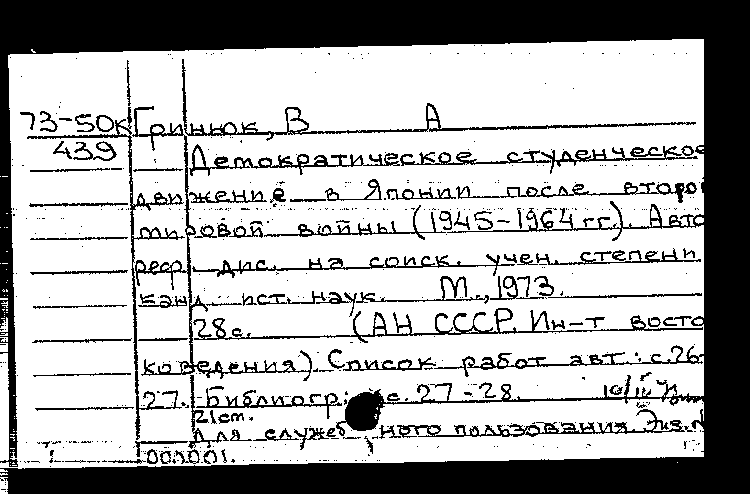 73-50к Гринюк, В А
439 Демократическое студенческое
движение в Японии после второ
мировой войны (1945-1964 гг.). Авто
реф. дис. на соиск. учен. степени
канд. ист. наук. М., 1973.
28с. (АН СССР. Ин-т восто
коведения) Список работ авт.: с.26-
27. Библиогр.: с. 27-28. 10/IV
21 cm.
Для служебного пользования. Экз. №
000001.